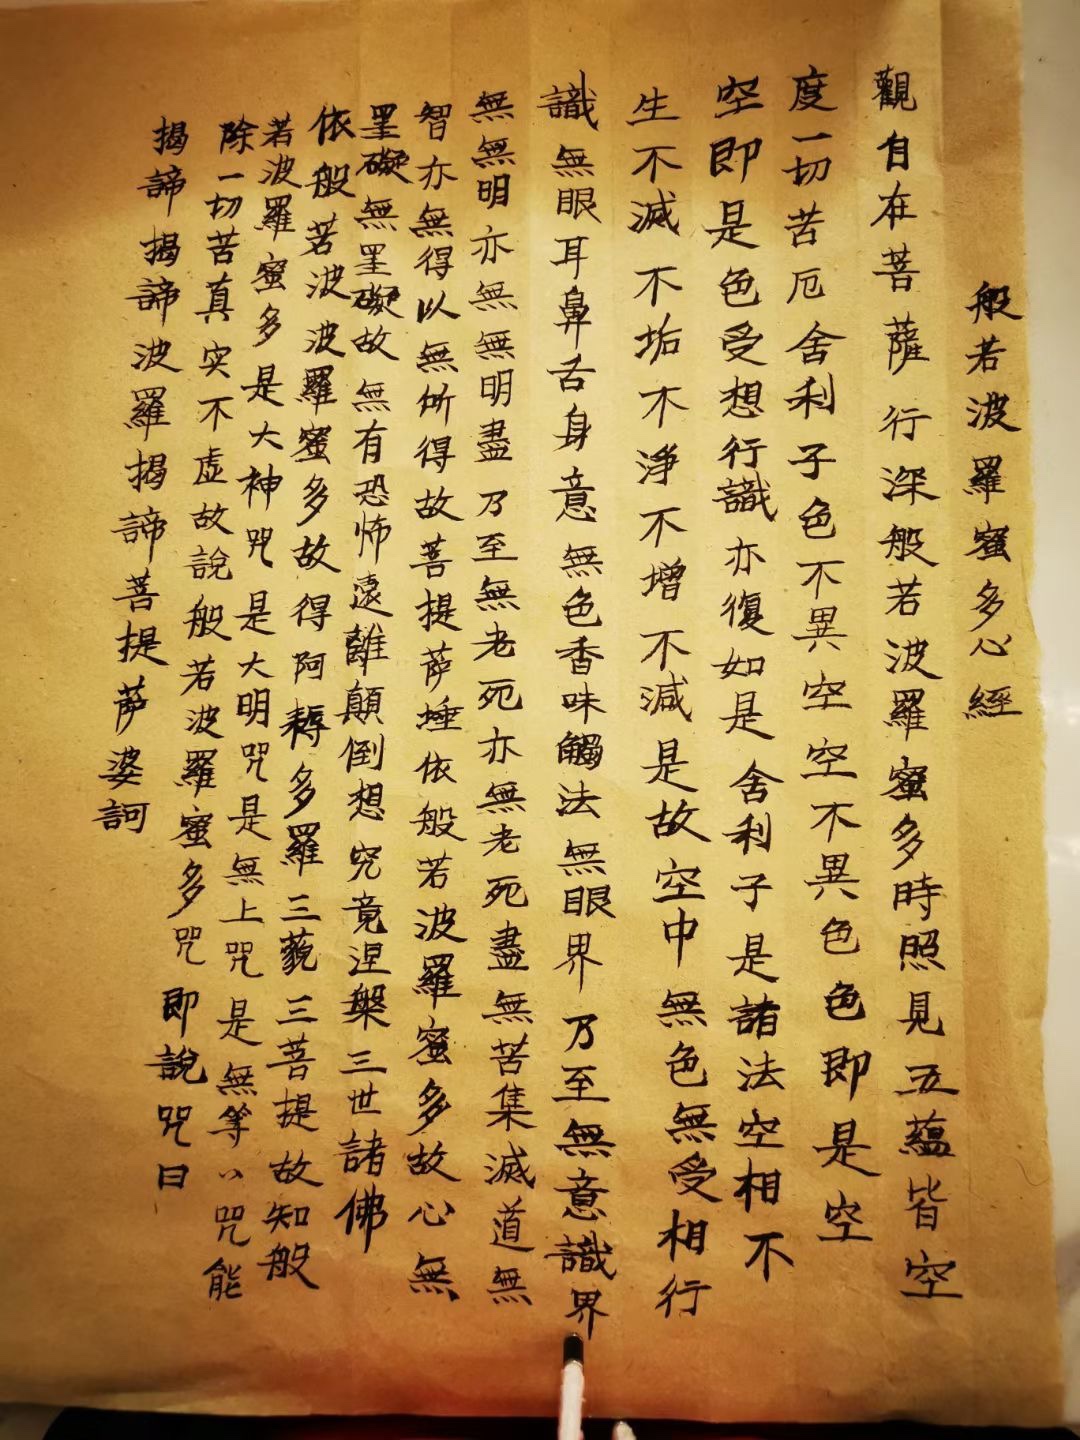 般若波羅蜜多心經
觀自在菩薩行深般若波羅蜜多時照見五蘊皆空
度一切苦厄舍利子色不異空空不異色色即是空
空即是色受想行識亦復如是舍利子是諸法空相不
生不滅不垢不淨不增不減是故空中無色無受相行
識無眼耳鼻舌身意無色香味觸法無眼界乃至無意識界
無無明亦無無明盡乃至無老死亦無老死盡無苦集滅道無
智亦無得以無所得故菩提萨埵依般若波羅蜜多故心無
罣礙無罣礙故無有恐怖遠離顛倒想究竟涅槃三世諸佛
依般若波波羅蜜多故得阿耨多羅三藐三菩提故知般
若波羅蜜多是大神咒是大明咒是無上咒是無等々咒能
除一切苦真实不虚故說般若波羅蜜多咒即說咒曰
揭諦揭諦波羅揭諦菩提萨婆訶